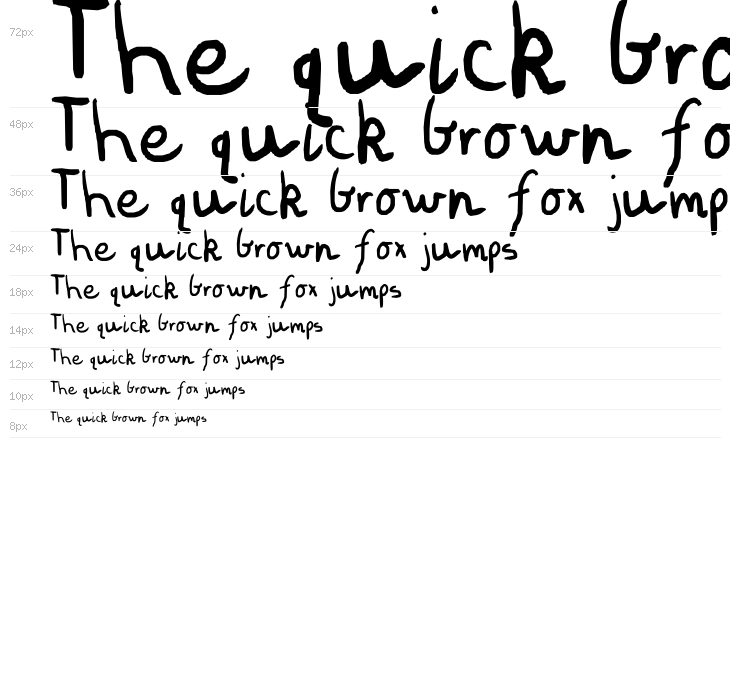 72px The quick bro
48px The quick brown fo
36px The quick brown fox jump
24px The quick brown fox jumps
18px The quick brown fox jumps
14px The quick brown fox jumps
12px The quick brown fox jumps
10px The quick brown fox jumps
8px The quick brown fox jumps